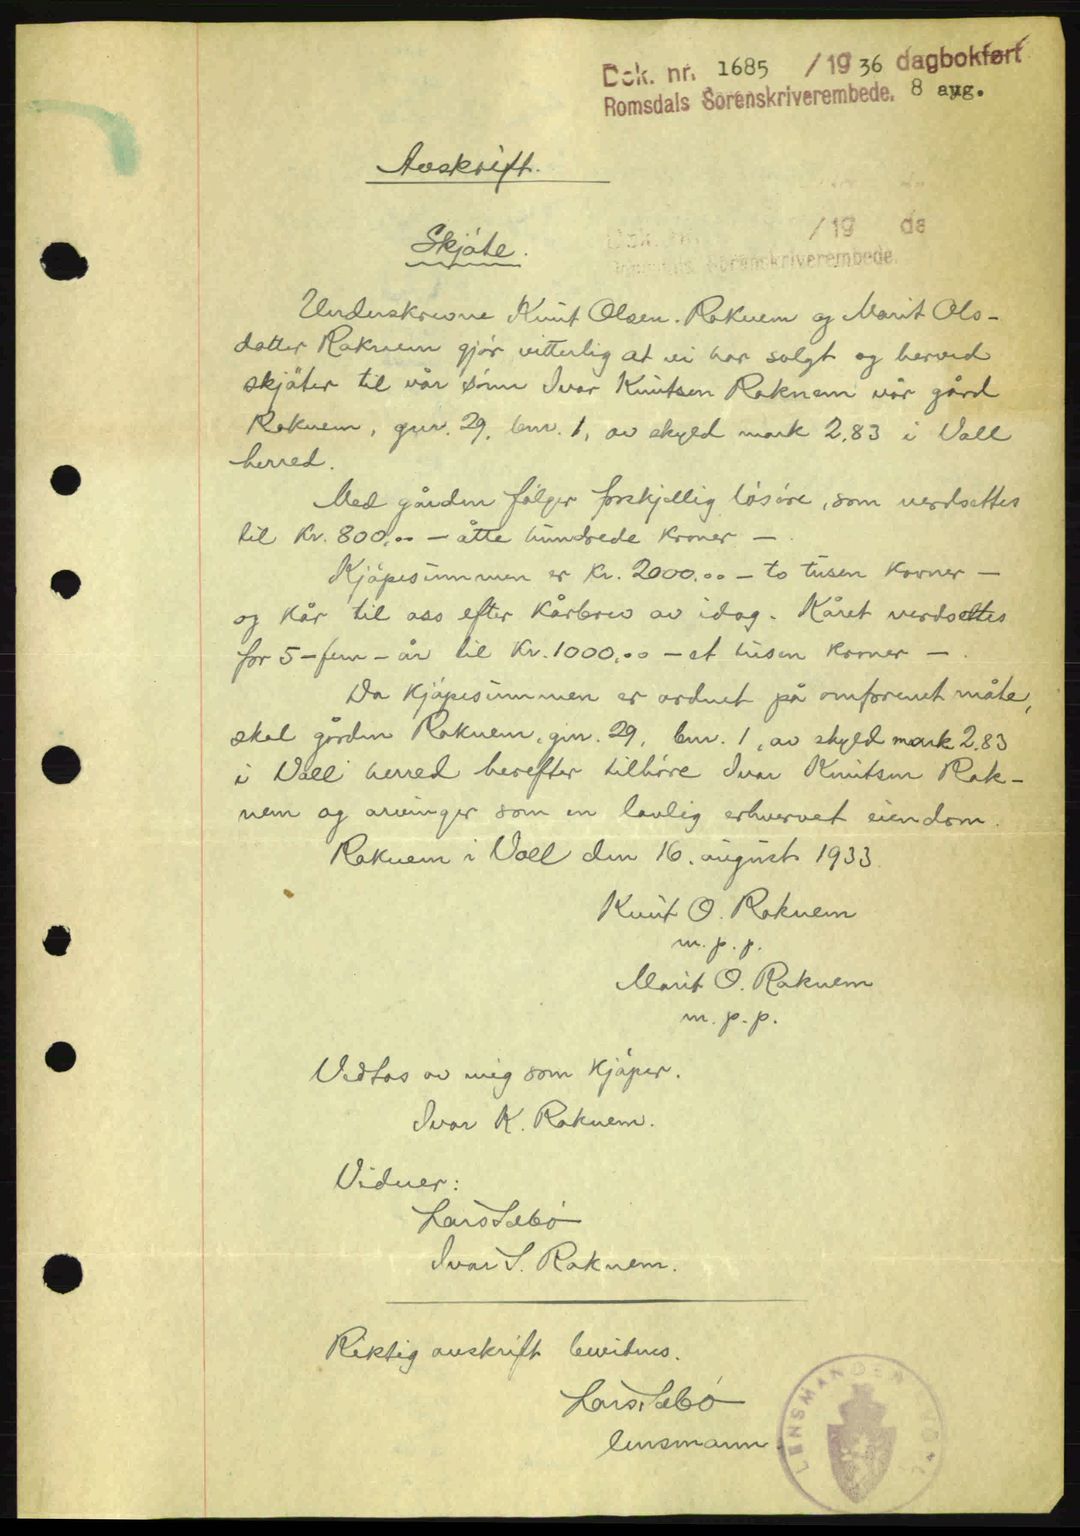 Dok. nr. 1685 / 1936 dagbokført
Romsdals Sorenskriverembede. 8 aug.
Avskrift.
/ 19 da
Sorenskriverembede.
Skjøte.
Underskrevne Knut Olsen Raknem og Marit Ols-
datter Raknem gjør vitterlig at vi har solgt og herved
skjøter til vår sønn Ivar Knutsen Raknem vår gård
Raknem, gnr. 29, bnr. 1, av skyld mark 2,83 i Voll
herred.
Med gården følger forskjellig løsøre, som verdsettes
til kr. 800,00 – åtte hundrede kroner –.
Kjøpesummen er kr. 2000,00 – to tusen kroner –
og kår til oss efter kårbrev av idag. Kåret verdsettes
for 5 – fem – år til kr. 1000,00 – et tusen kroner –.
Da kjøpesummen er ordnet på omforenet måte,
skal gården Raknem, gnr. 29, bnr. 1, av skyld mark 2,83
i Voll herred herefter tilhøre Ivar Knutsen Rak-
nem og arvinger som en lovlig erhvervet eiendom.
Raknem i Voll den 16. august 1933
Knut O. Raknem
m. p. p.
Marit O. Raknem
m. p. p.
Vedtas av mig som kjøper.
Ivar K. Raknem.
Vidner:
Lars Sebø
Ivar S. Raknem.
Riktig avskrift bevitnes.
Lars Sebø
lensmann.
LENSMANDEN I VOLL